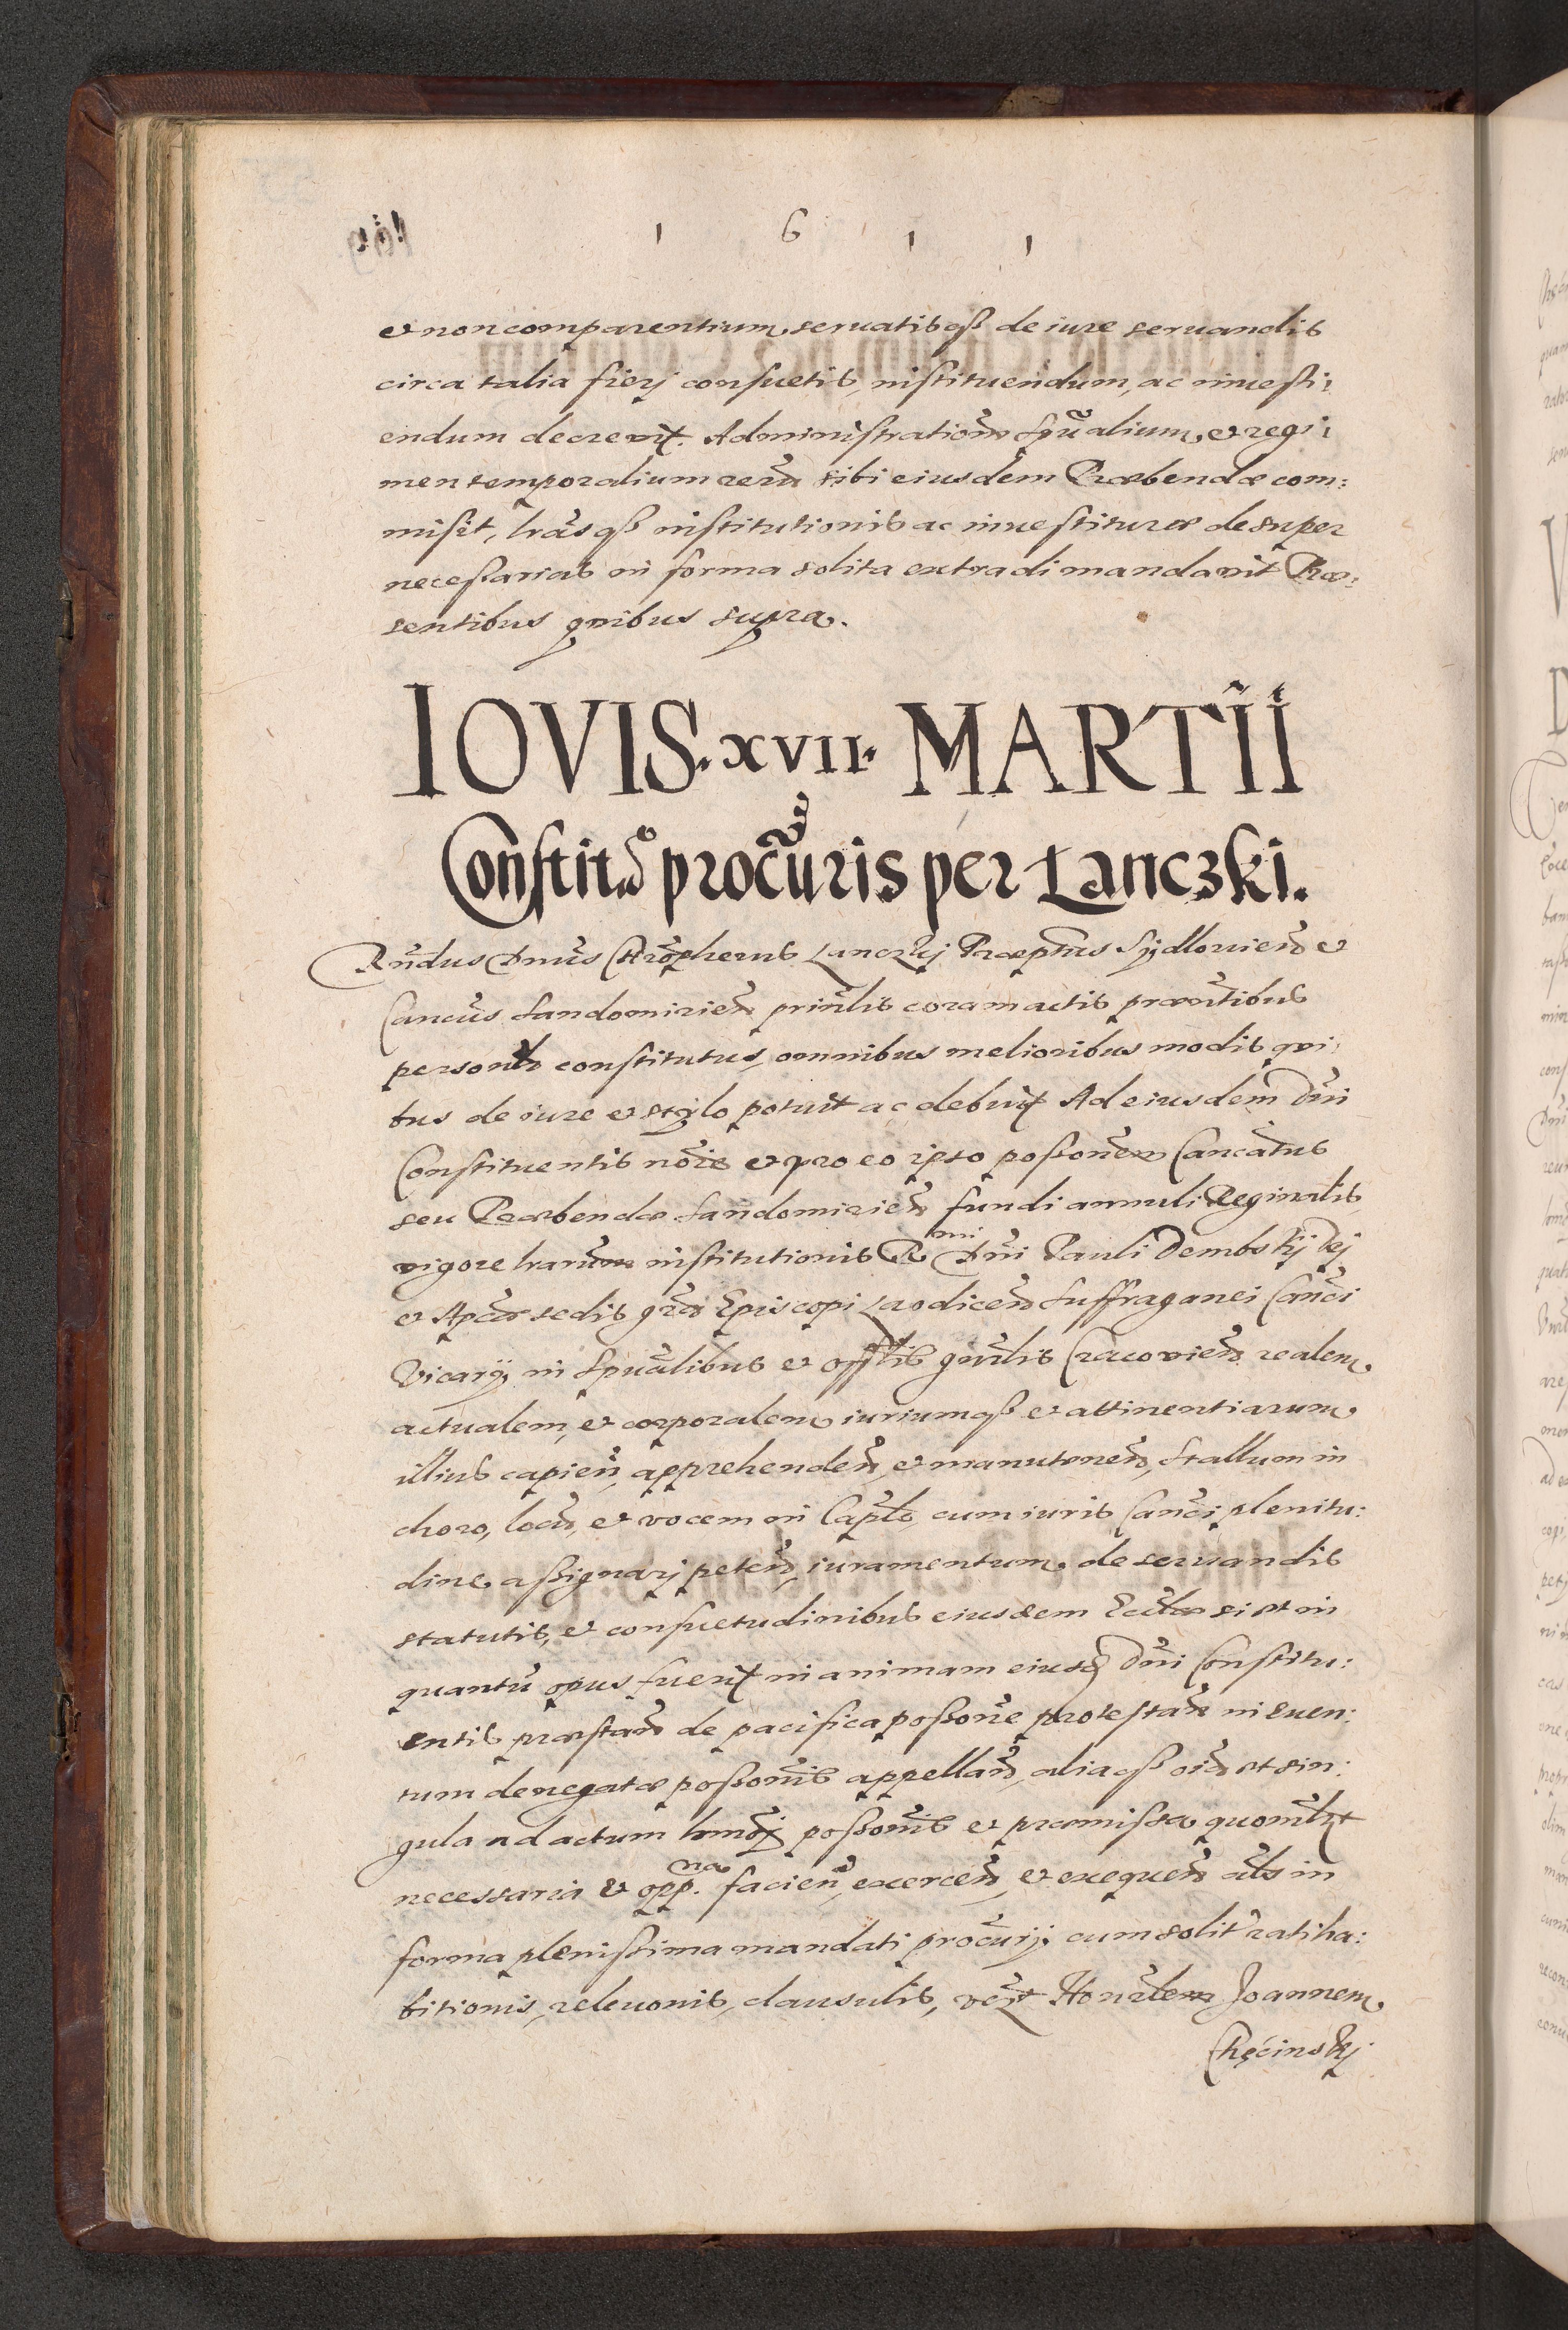 1 6 1 1
et non comparentium, seruatisqꝫ de iure seruandis
circa talia fierj consuetis, instituendum, ac inuesti:
endum decreuit. Administrationẽ spũalium, et regi:
men temporalium rerũ sibi eiusdem Præbendæ com:
misit, lrãsqꝫ institutionis ac inuestituræ desuper
necessarias in forma solita extradi mandauit Præ:
sentibus quibus supra.
IOVIS. XVII. MARTII
Constitõ procũris per Lanczki.
Rñdus Dnũs Chrõpherus Lanczkj Præptũs Sÿdlouieñ et
Cancũs Sandomirieñ prinlĩs coram actis præñtibus
personlr̃ constitutus, omnibus melioribus modis qui:
bus de iure et stylo potuit ac debuit Ad eiusdem Dñi
Constituentis nõie et pro eo ipso possionẽm Cancãtus
seu Præbendæ Sandomirieñ fundi annuli Reginalis,
vigore lrarũm institutionis R mi Dñi Pauli Dembskj Dej
et Apcæ̃ sedis grã Episcopi Laodiceñ Suffraganei Canõci
Vicarÿ in Spũalibus et Offlĩs gnrãlis Cracouieñ realem,
actualem, et corporalem, iuriumqꝫ et attinentiarum
illius capieñ, apprehendeñ, et manuteneñ, stallum in
choro, locũ, et vocem in Caplõ, cum iuris Canõci plenitu:
dine assignarj peteñ, iuramentum de seruandis
statutis, et consuetudinibus eiusdem Ecclæ̃ si et in
quantũ opus fuerit in animam eiusd̃ Dñi Constitu:
entis præstañ de pacifica possionẽ protestañ in euen:
tum denegatæ possionĩs appellañ, aliaqꝫ oĩa et sin:
gula ad actum hmõj possionĩs et præmissa quomlt̃
necessaria et opp. na facieñ, exerceñ, et exequeñ als̃ in
forma plenissima mandati procũrÿ cum solit̃ ratiha:
bitionis, releuonĩs, clausulis, vczt̃ Honrãlem Joannem
Chęćinskj